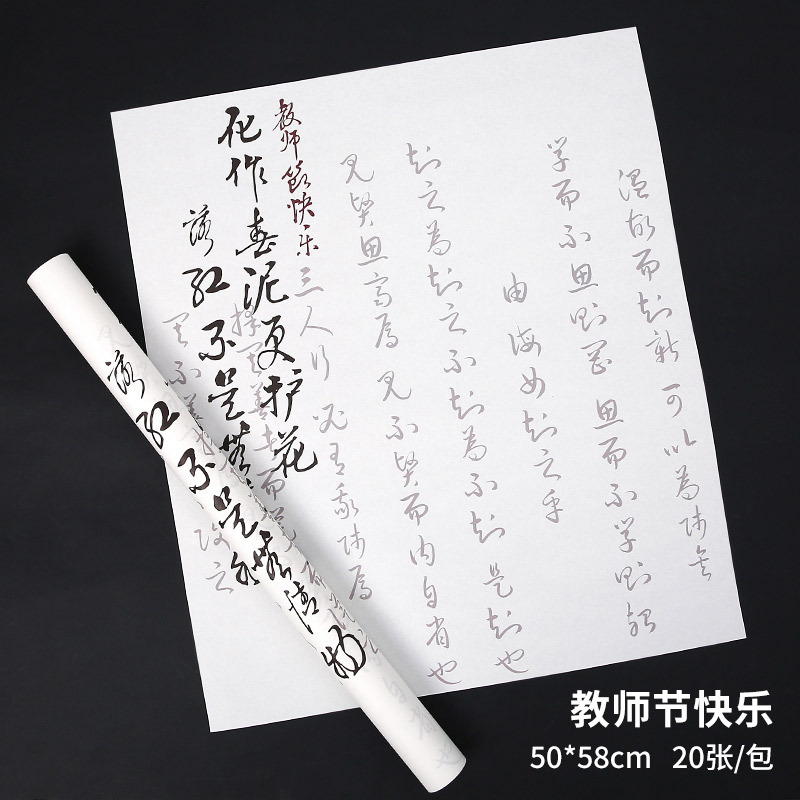 温故而知新可以為师矣
学而不思则罔思而不学则殆
由诲女知之乎
知之為知之不知為不知是知也
见贤思齐焉见不贤而内自省也
三人行必有我师焉
择其善者而
其不善
改之
教师节快乐
化作春泥更护花
落红不是無
落红不是無情物
教师节快乐
50*58cm 20张/包